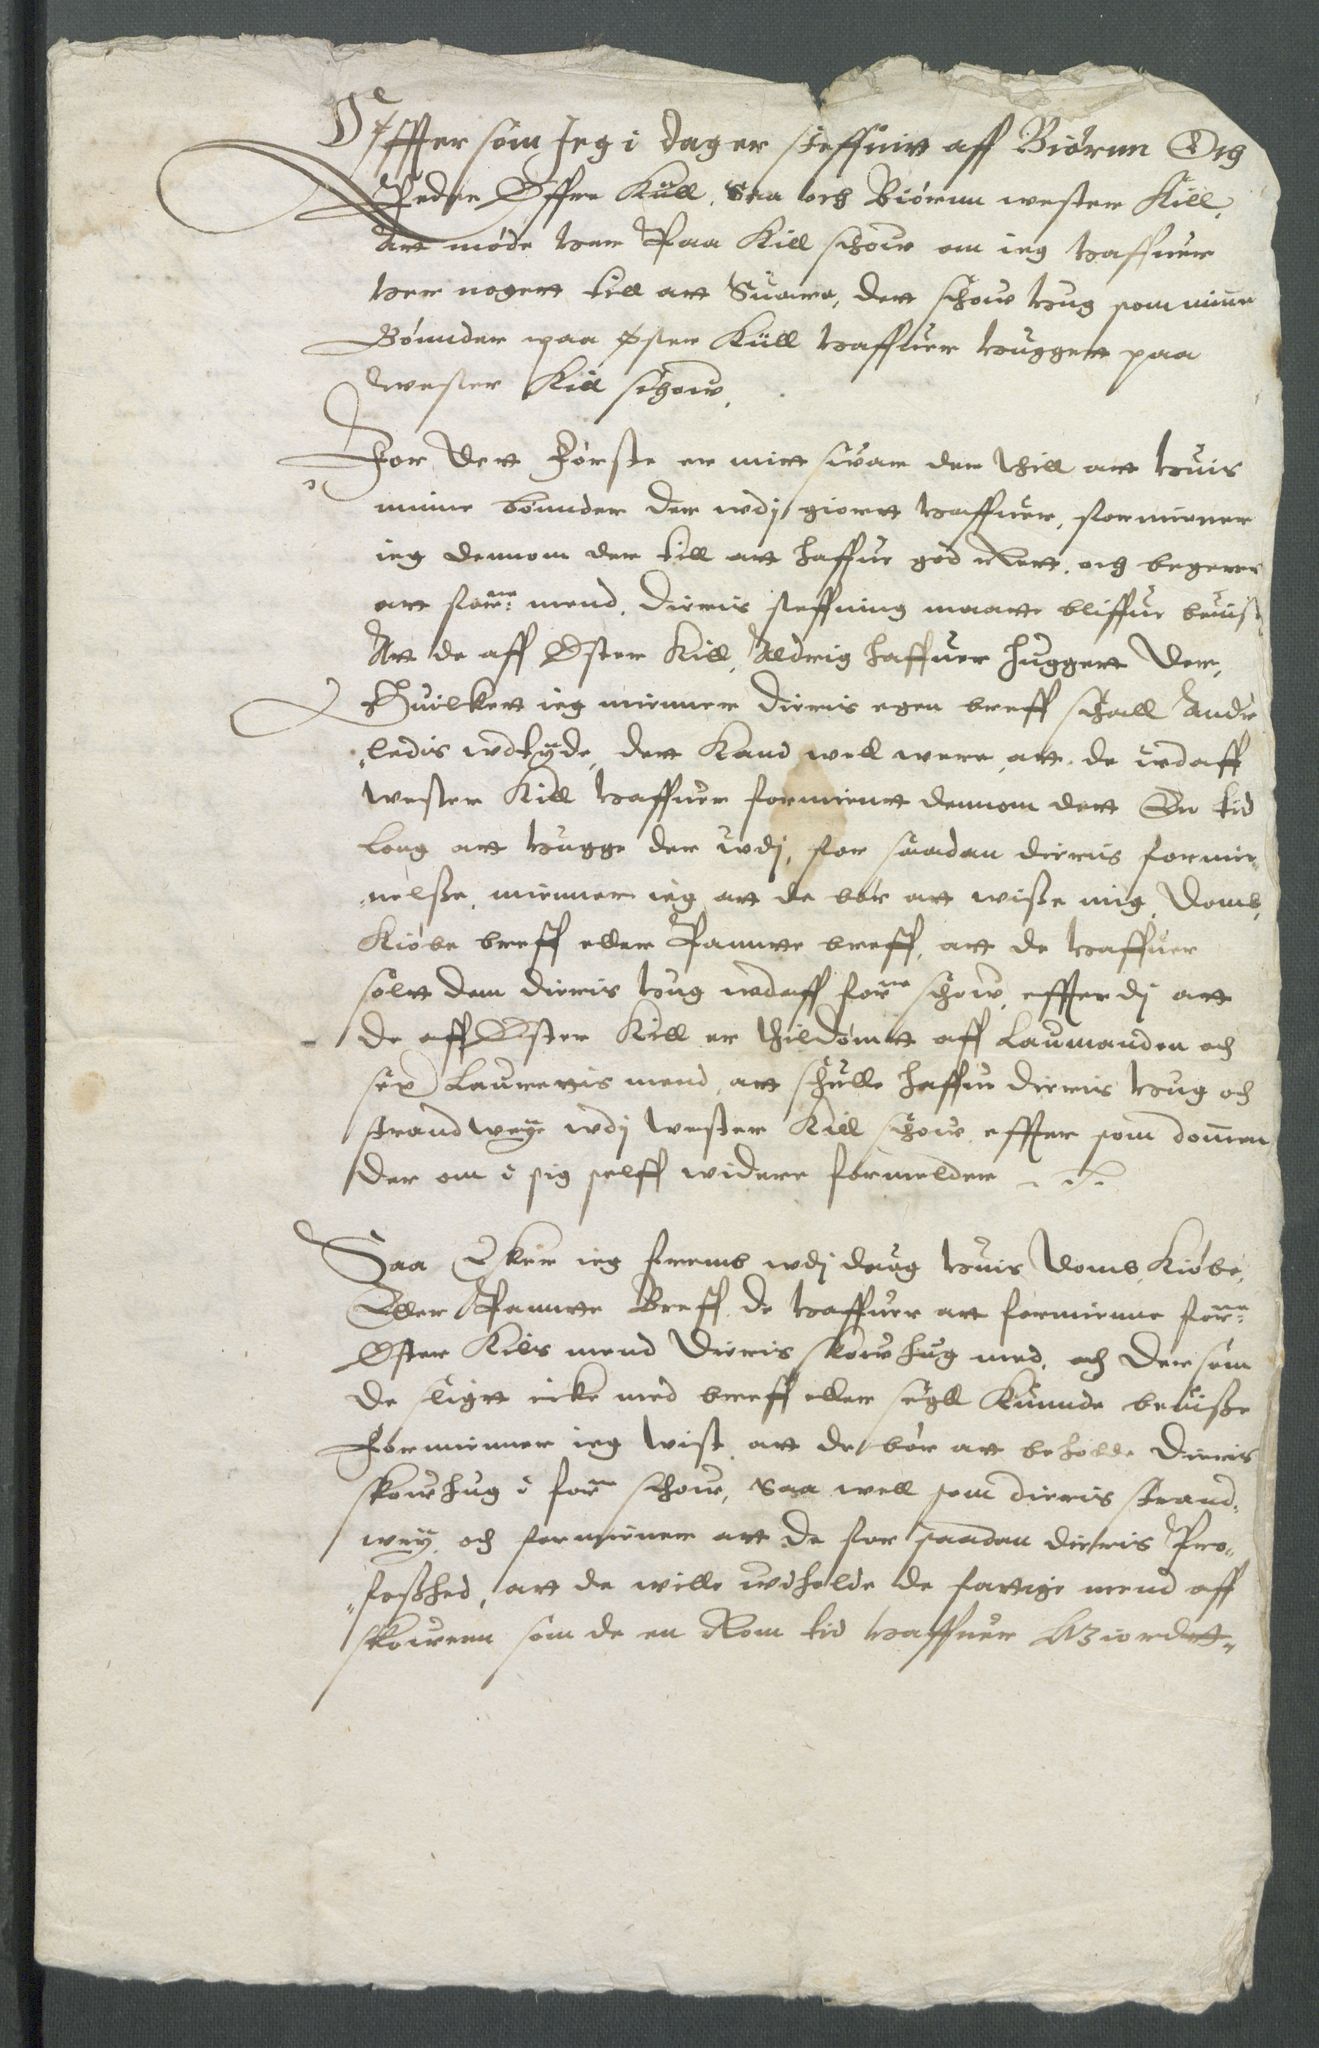 Effter som Jeg i dag er steffnitt aff Biørnn Och
Peder Øffre Küll, Saa och Biørnn wester Kill,
Att møde her Paa Kill schow om ieg haffuer
her nogett till att Suare, dett schow hug som mine
Bønnder paa øster Küll haffuer huggett paa
wester Kill schow,
For Dett Første er mitt swar der thill att huis
minne bønnder der wdj giortt haffuer, formiener
ieg dennom der till att haffue god Rett, och begerer
att forne: mend, dieris steffning maatte bliffue beuist,
Att de aff Øster Kill, Aldrig haffuer huggett der,
Huilkett ieg mienner dieris egen breff schall Andre
ledis wdtyde, dett Kand well were, att de udaff
wester Kill haffuer formient dennom dett En tid
lang att hugge der udj, for saadan dieris formie¬
nelsse, mienner ieg att de bør att wisse mig, Domb,
Kiøbe breff eller Pannte breff, att de haffuer
soltt dem dieris hug udaff forne schow, effterdj att
de aff Øster Kill er thildømtt aff Laumanden och
sex Laurettis mend, att schulle haffue dieris hug och
strandweye wdj wester Kill schow effter som domen
der om i sig selff widere formelder
Saa Esker ieg frembs wdj daug huis Domb, Kiøbe,
Eller Pannte Breff de haffuer att formienne forne:
Øster Kils mend Dieris skow hug med, och Der som
de sligtt icke med breff eller segll Kunnde beuisse
Formienner ieg wist att de bør att beholde Dieris
skow hug i forne schow, Saa well som dieris strand¬
wey, och formiener att de for saadan dieris Fro¬
fashed, att de wille wdholde de fattige mend aff
skowenn som de en Rom tid haffuer